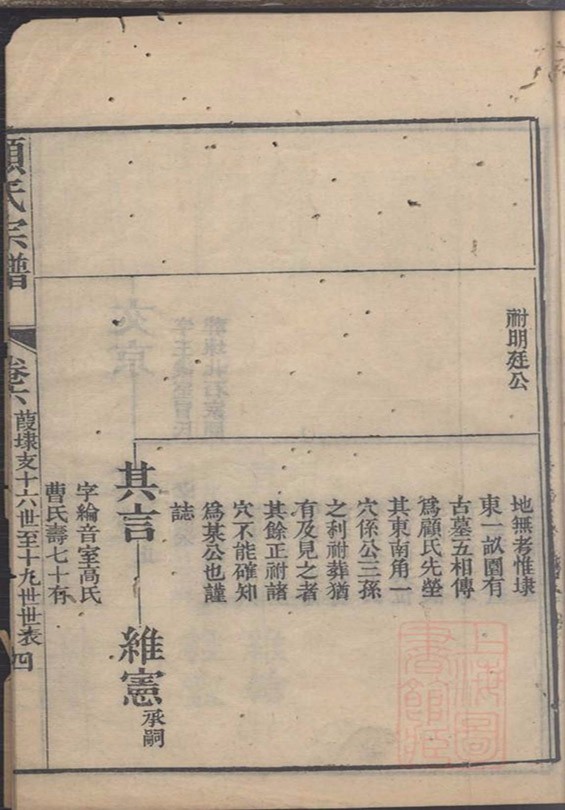 祔明廷公
地無考惟埭
東一畝園有
古墓五相傳
為顧氏先塋
其東南角一
穴係公三孫
之利祔葬猶
有及見之者
其餘正祔諸
穴不能確知
為某公也謹
誌
其言
維憲承嗣
字綸音室高氏
曹氏壽七十有
顧氏宗譜
卷六
葭埭支十六世至十九世世表
四
上海圖書館藏